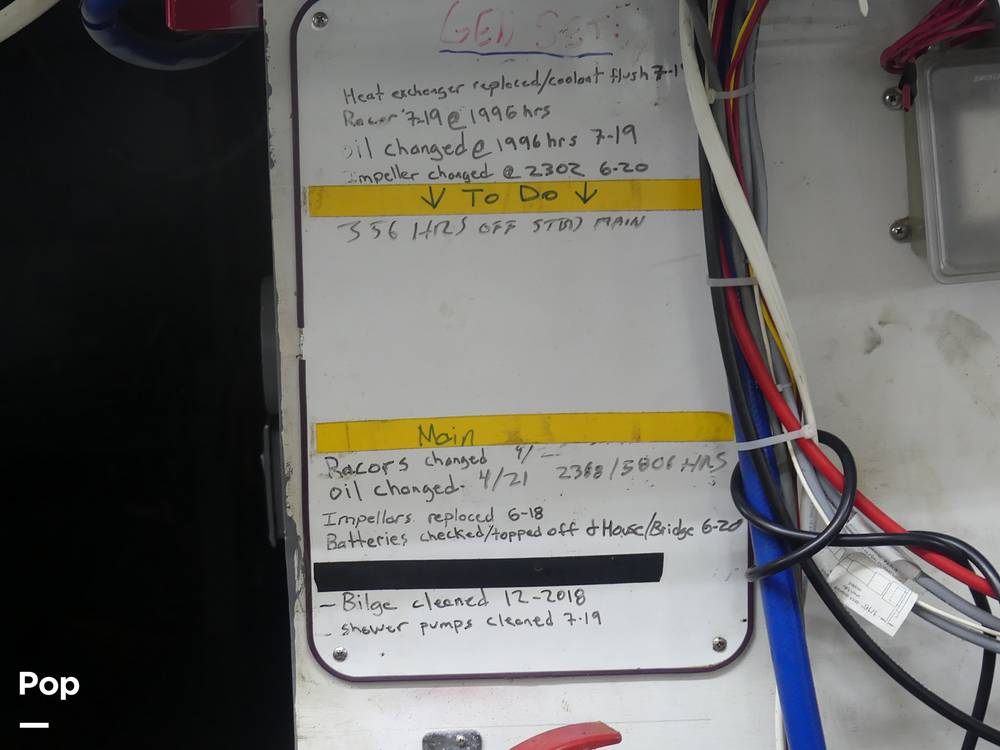 GEN SET:
Heat exchanger replaced/coolant flush 7-1
Racor 7-19 @ 1996 hrs
oil changed @ 1996 hrs 7-19
Impeller changed @ 2302 6-20
↓ To Do ↓
356 HRS OFF STBD MAIN
Main
Racors changed 4/
oil changed- 4/21 2368/5806 HRS
Impellars replaced 6-18
Batteries checked/topped off House/Bridge 6-20
- Bilge cleaned 12-2018
- shower pumps cleaned 7-19
Pop